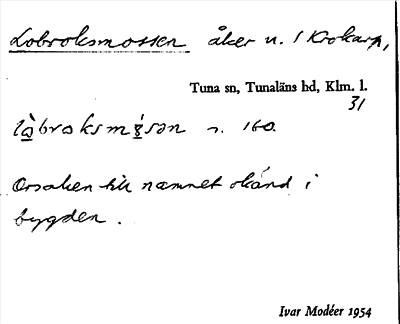 Lobroksmossen åker n. 1 Krokarp,
Tuna sn, Tunaläns hd, Klm. l.
31
lòbroksmɤ́sən s. 160.
Orsaken till namnet okänd i
bygden.
Ivar Modéer 1954